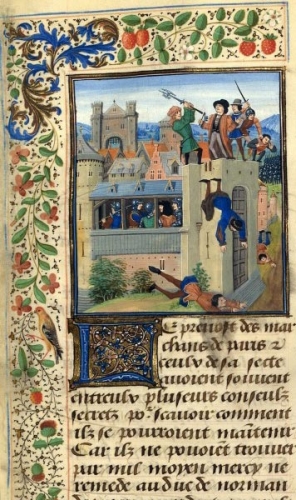 Le prevost des mar
chans de paris et
ceulx de sa secte
avoient souvent
entreulx plusieurs conseulz
secretz por scavoir comment
ilz se pourroient maintenir
Car ilz ne povoient trouver
par nul moyen mercy ne
remede au duc de norman